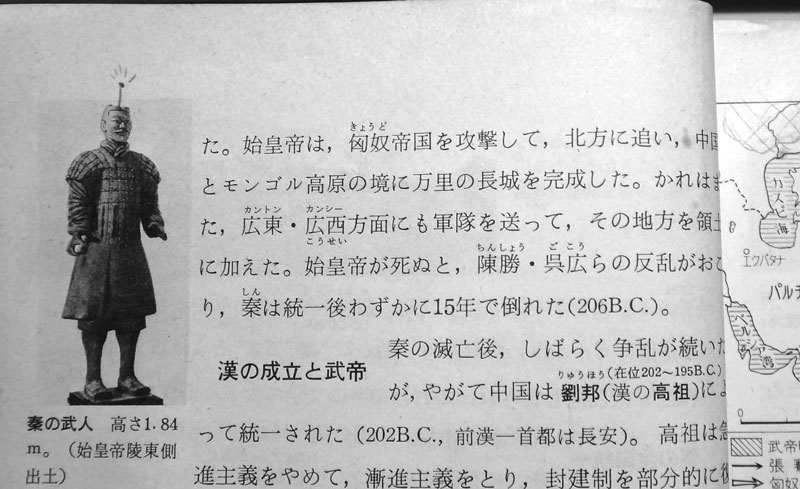 た。始皇帝は，匈奴帝国を攻撃して，北方に追い，中国
とモンゴル高原の境に万里の長城を完成した。かれはま
た，広東・広西方面にも軍隊を送って，その地方を領土
に加えた。始皇帝が死ぬと，陳勝・呉広らの反乱がおこ
り，秦は統一後わずかに15年で倒れた(206B.C.)。
漢の成立と武帝
秦の滅亡後，しばらく争乱が続いた
が，やがて中国は劉邦(漢の高祖)によ
って統一された（202B.C.，前漢―首都は長安）。高祖は急
進主義をやめて，漸進主義をとり，封建制を部分的に復
きょうど
カントン
カンシー
こうせい
ちんしょう
ごこう
しん
りゅうほう(在位202〜195B.C.)
秦の武人　高さ1.84
m。（始皇帝陵東側
出土）
カスピ海
エクバタナ
パルチ
ペルシア湾
0
武帝
張
匈奴